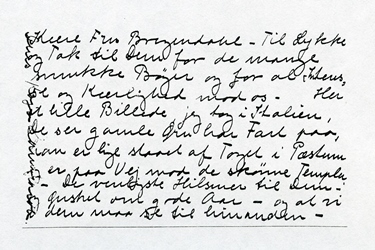 Kære Fru Bregendahl – Til Lykke
og Tak til Dem for de mange
smukke Bøger og for al Interes-
se og Kærlighed mod os – Her
et lille Billede jeg tog i Italien,
De ser gamle har Fart paa,
han er lige staaet af Toget i Pæstum
er paa Vej mod de skønne Templer
– De venligste Hilsner til Dem –
ønsket om gode Aar – og at vi
dem maa se til hinanden –